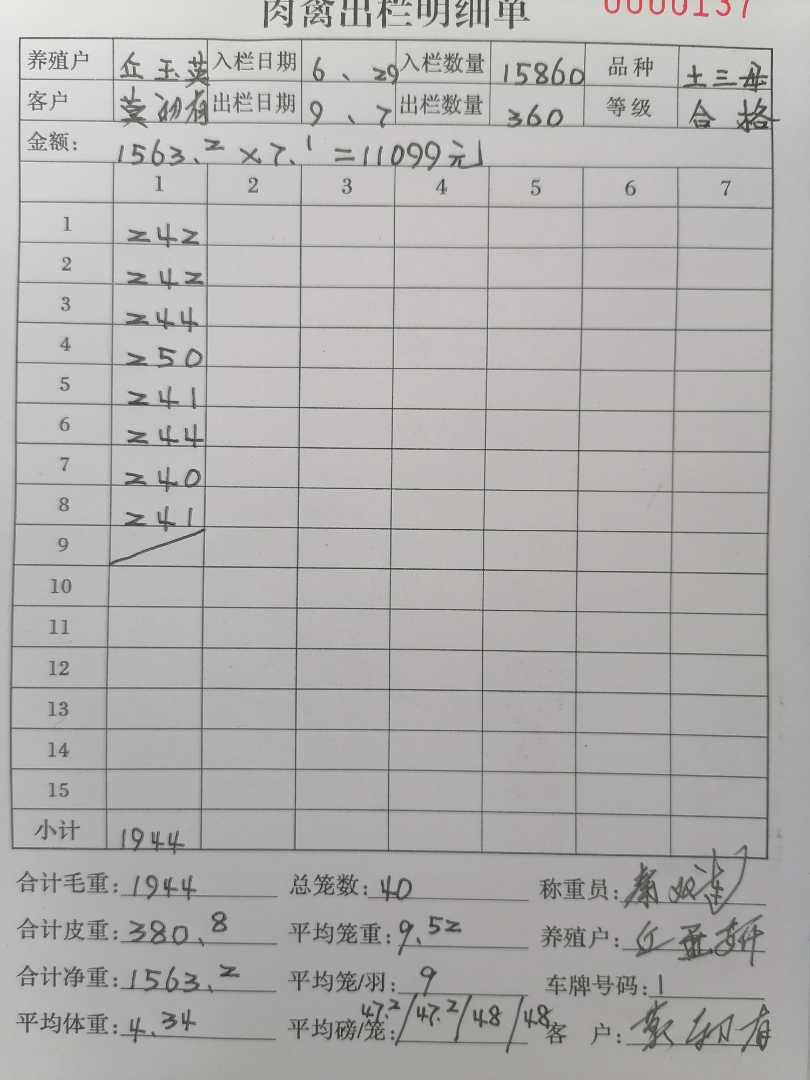 肉禽出栏明细单 0000137
养殖户 丘玉英 入栏日期 6、29 入栏数量 15860 品种 土三母
客户 莫初有 出栏日期 9、7 出栏数量 360 等级 合格
金额: 1563.2×7.1=11099元
1 2 3 4 5 6 7
1 242
2 242
3 244
4 250
5 241
6 244
7 240
8 241
9
10
11
12
13
14
15
小计 1944
合计毛重: 1944 总笼数: 40 称重员:
合计皮重: 380.8 平均笼重: 9.52 养殖户: 丘
合计净重: 1563.2 平均笼/羽: 9 车牌号码: 1
平均体重: 4.34 平均磅/笼: 47.2/47.2/48/48 客户: 莫初有